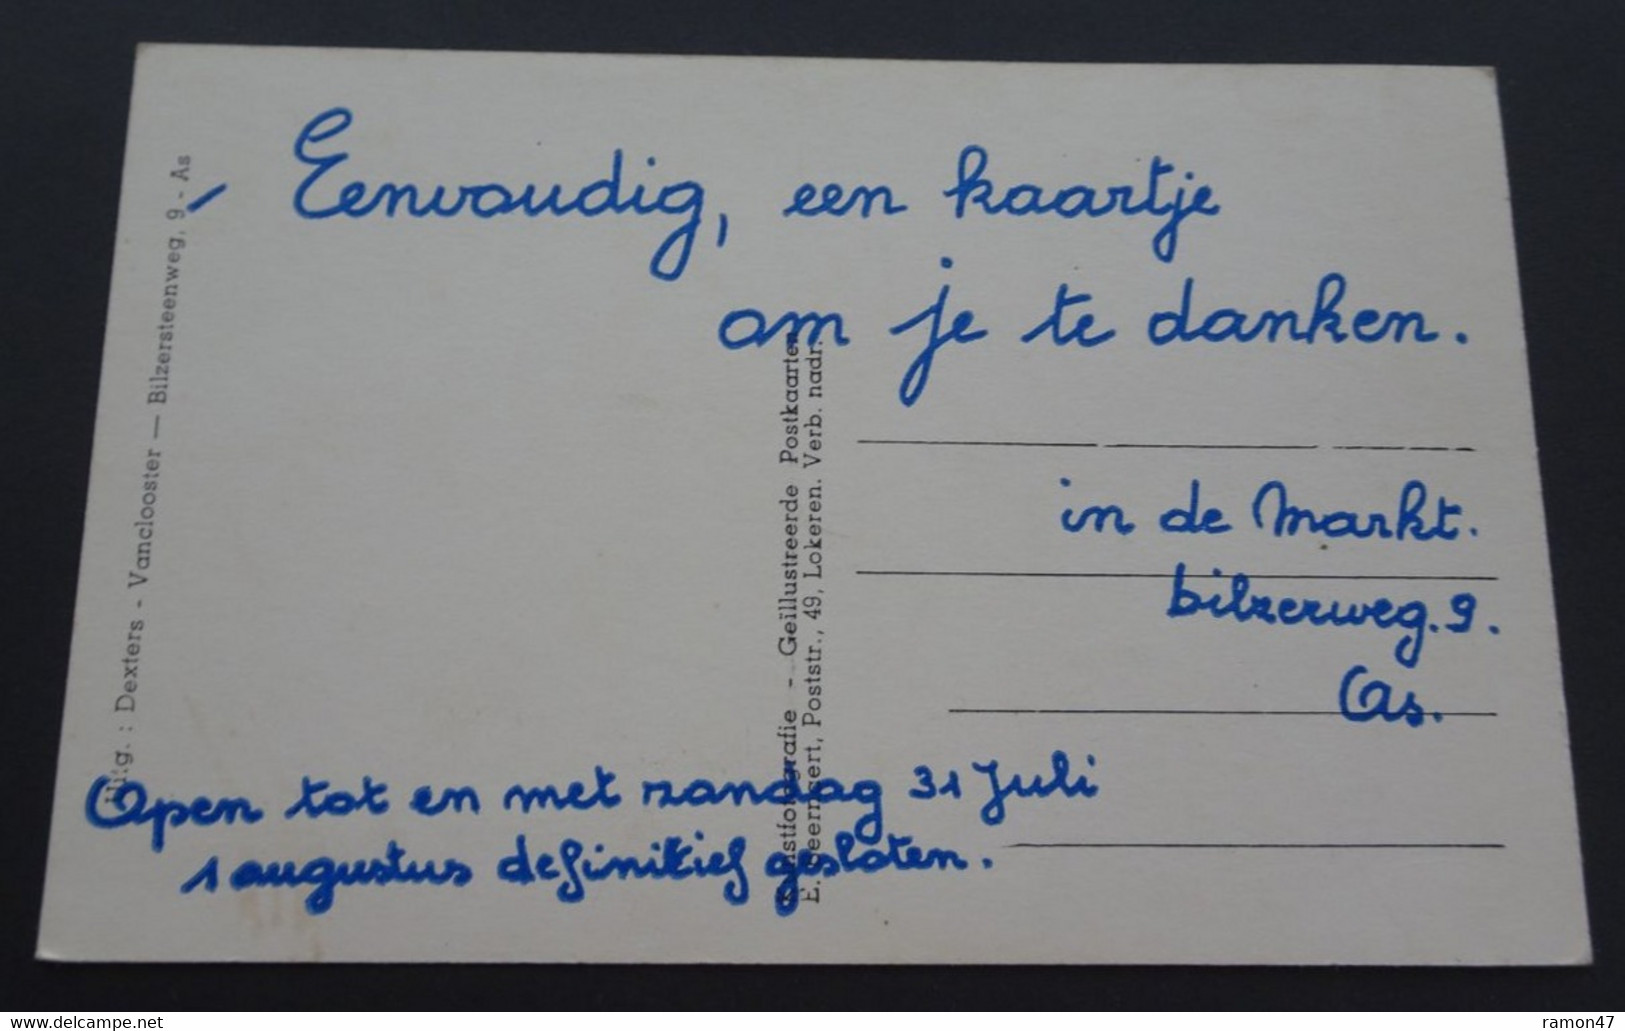 Uitg. : Dexters - Vanclooster — Bilzersteenweg, 9 - As
Eenvoudig, een kaartje
om je te danken.
Kunstfotografie - Geïllustreerde Postkaarten
E. Beernaert, Poststr., 49, Lokeren. Verb. nadr.
in de Markt.
bilzerweg. 9.
As.
Open tot en met zondag 31 Juli
1 augustus definitief gesloten.
www.delcampe.net
ramon47